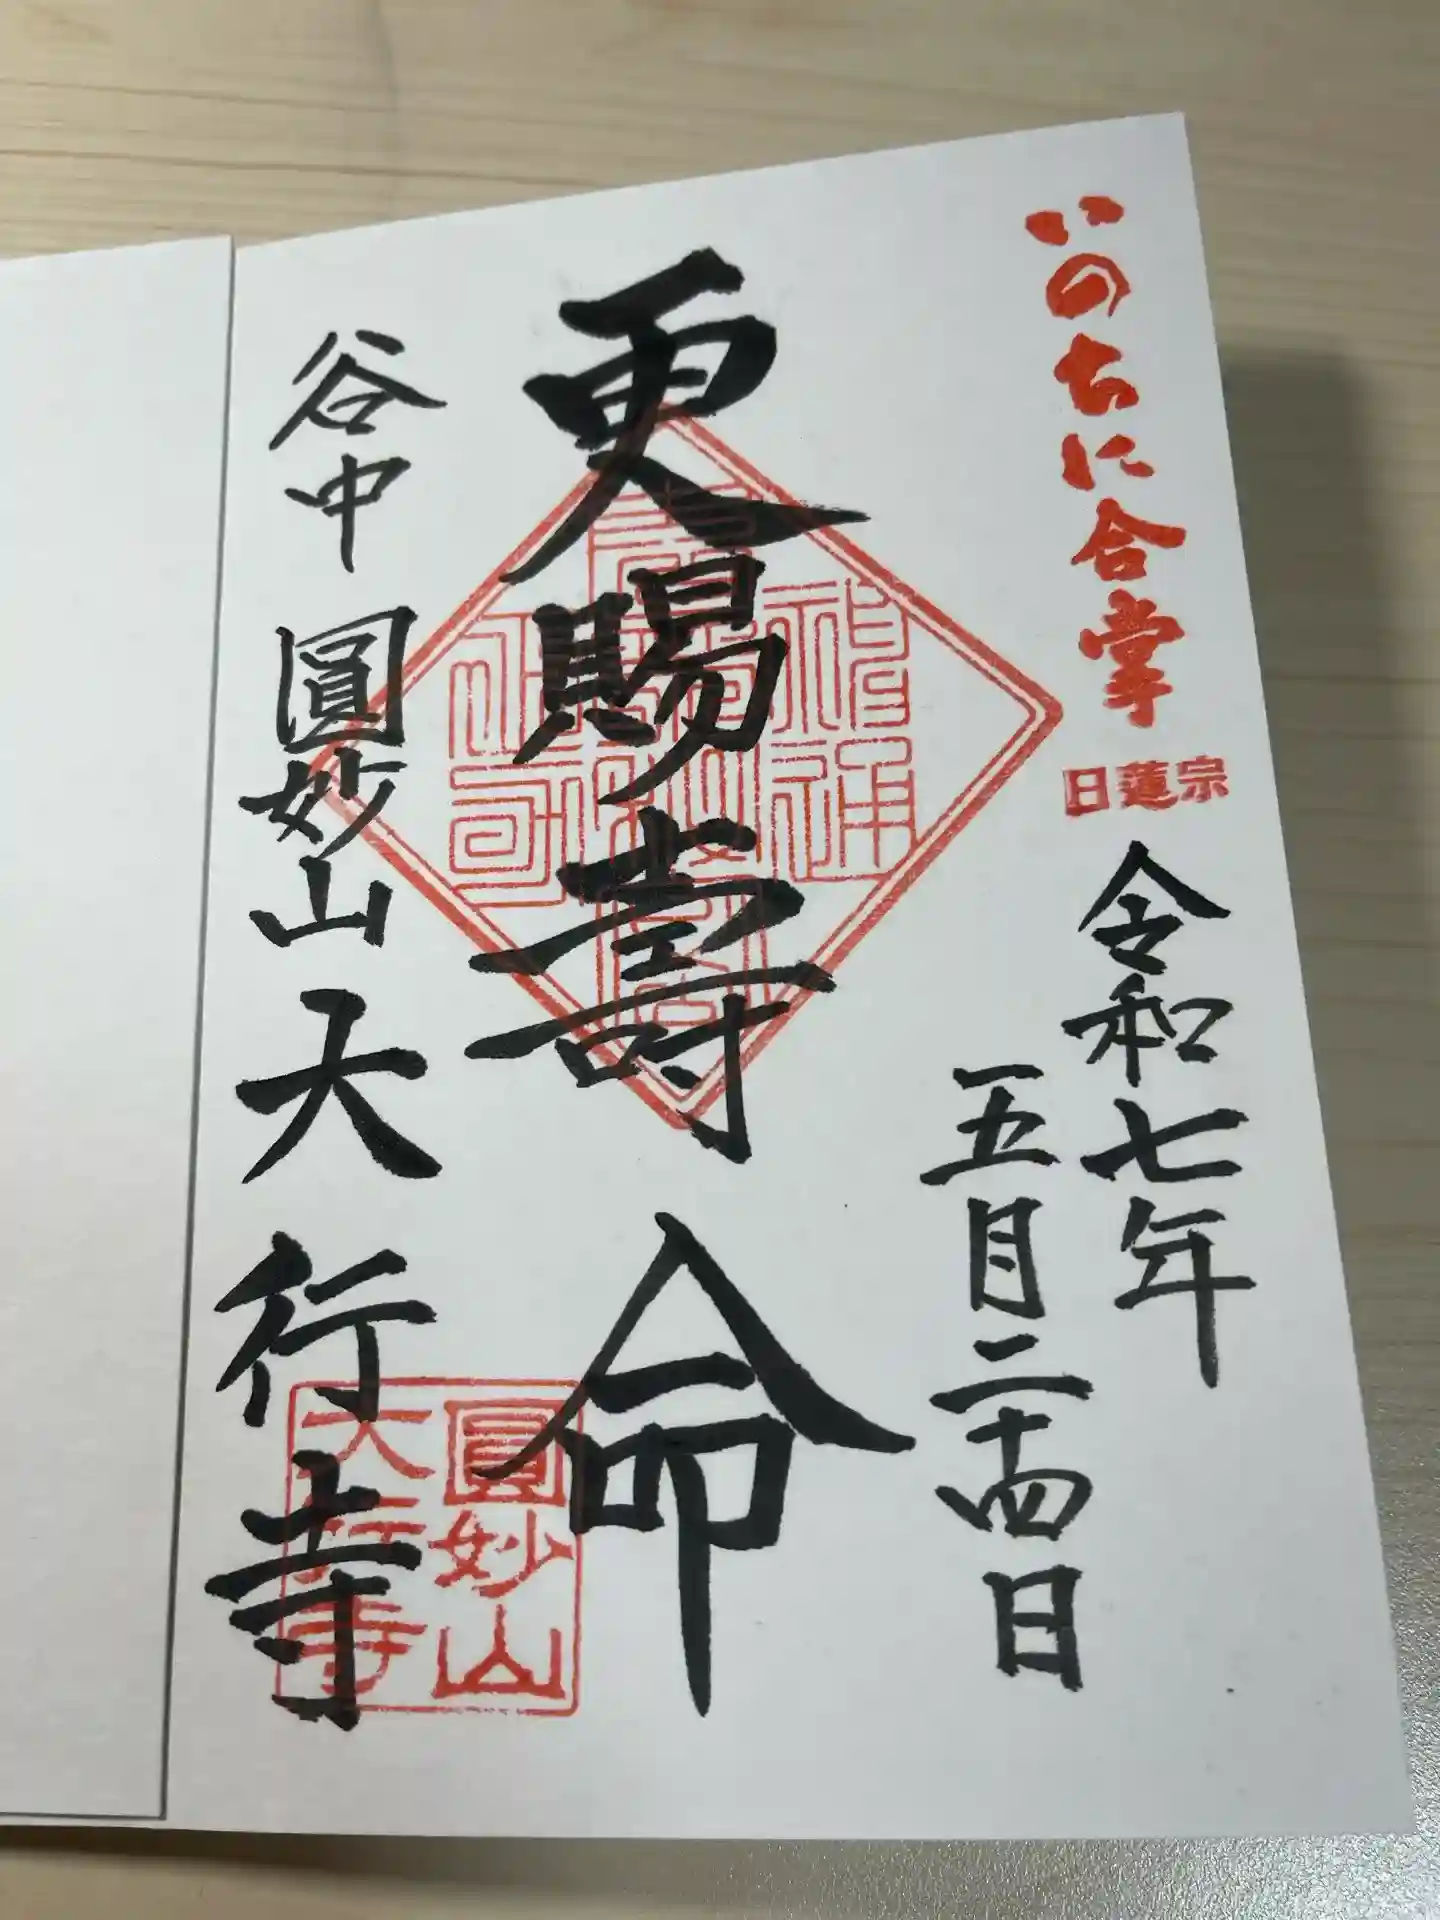 いのちに合掌
日蓮宗
令和七年
五月二十四日
更賜壽命
谷中 圓妙山大行寺
圓妙山
大行寺